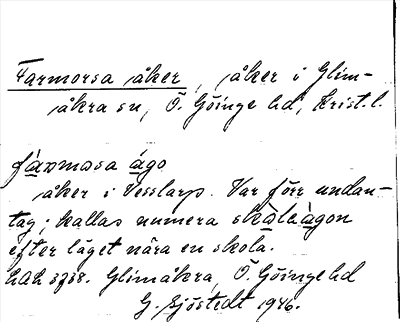 Farmorsa åker, åker i Glim-
åkra sn, Ö. Göinge hd, Krist. l.
fàrmosa ágo
åker i Vesslarp. Var förr undan-
tag; kallas numera skåleågon
efter läget nära en skola.
LAL Glimåkra, Ö. Göinge hd
G. Sjöstedt 1946.